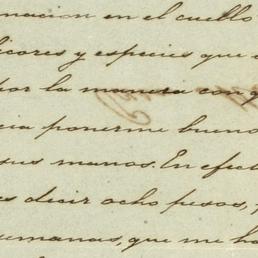 macion en el cuello
licores y especies que
por la manera con q
cia ponerme bueno
sus manos. En efect
es decir ocho pesos,
semanas, que me ha